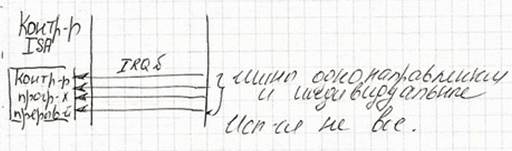 Контр-р
ISA
IRQ5
контр-р
прер-й
шины однонаправленны
и индивидуальные
Исп-ся не все.